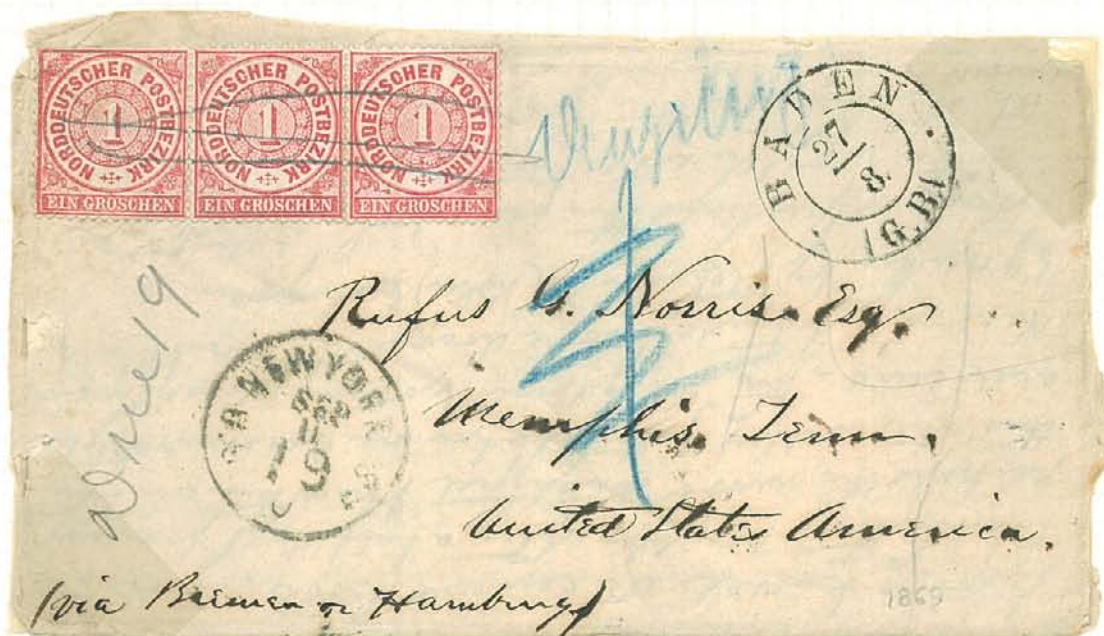 NORDDEUTSCHER POSTBEZIRK
1
EIN GROSCHEN
NORDDEUTSCHER POSTBEZIRK
1
EIN GROSCHEN
NORDDEUTSCHER POSTBEZIRK
1
EIN GROSCHEN
BADEN
27/8.
Rufus G. Norris. Esq.
Memphis. Tenn.
United States America.
(via Bremen or Hamburg)
NEW YORK
SEP
11
19
1869